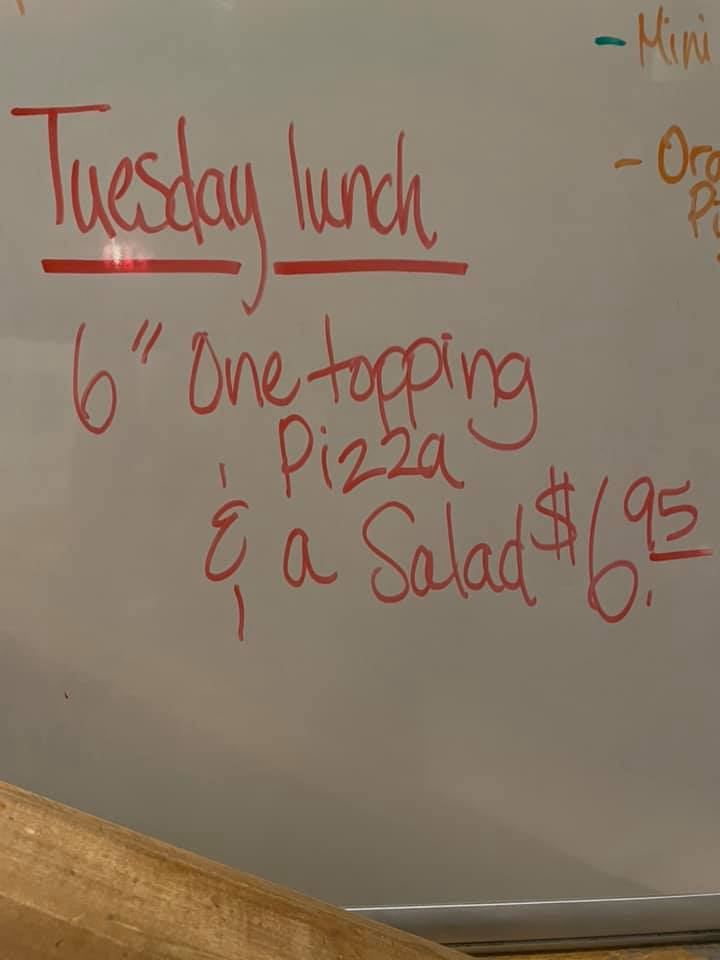 - Mini
Tuesday lunch
6" One topping
Pizza
& a Salad $6.95